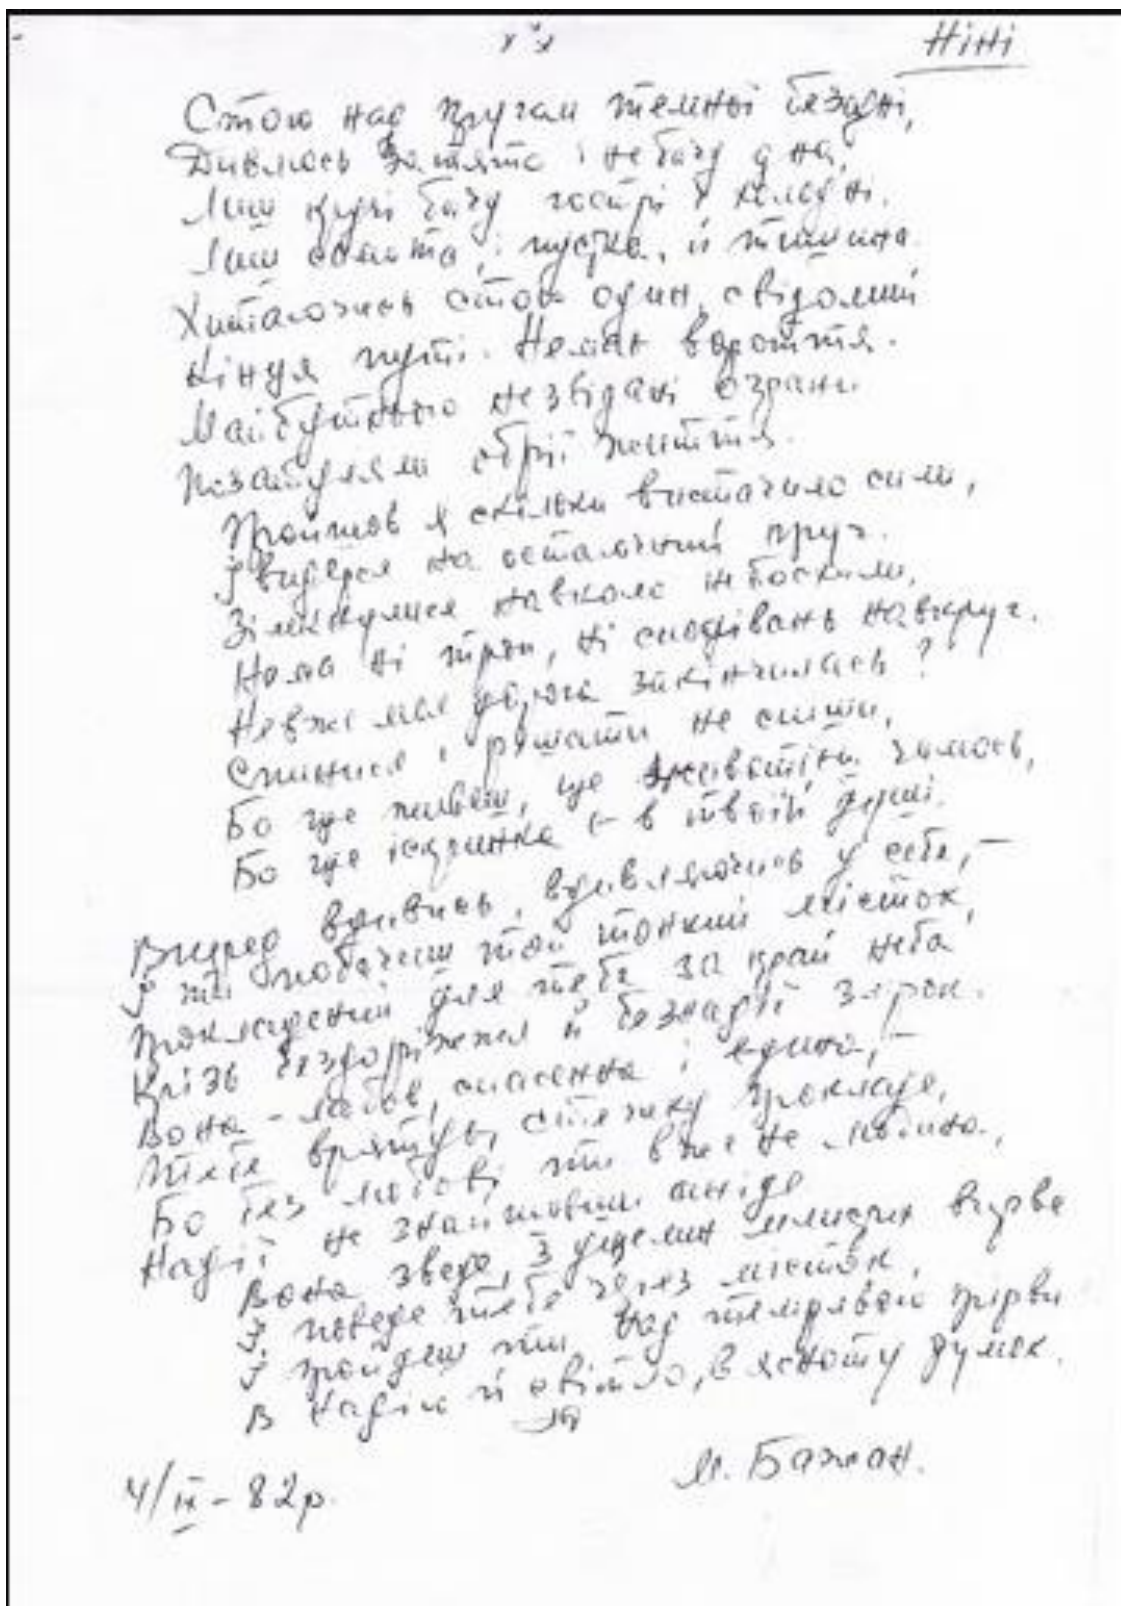 х х х
Ніні
Стою над пругом темної безодні,
Дивлюсь затято і не бачу дна,
Лиш кручі бачу гострі й холодні,
Лиш самота, і пустка, й тишина.
Хитаючись стою один, свідомий
Кінця путі. Немає вороття.
Майбутнього незвідані
обрії життя.
Пройшов я скільки вистачило сили,
І видерся на остаточний пруг.
Зімкнулися навколо небосхили,
Нема ні мрій, ні сподівань навкруг.
Невже моя дорога закінчилась?
Спинися і рішати не спіши,
Бо ще живеш, ще
Бо ще іскринка є в твоїй душі.
Вперед дивись, вдивляючись у себе, –
І ти побачиш той тонкий місток,
Прокладений для тебе за край неба
Крізь бездоріжжя й безнадії зірок.
Вона – любов, спасенна і єдина, –
Тебе врятує, стежку прокладе,
Бо без любові ти вже не людина,
Надії не знайшовши ніде
Вона зведе, з щелин вирве
І поведе тебе через місток,
І пройдеш ти над темрявою прірви
В надію й світло, в ясноту думок.
М. Бажан.
4/IX – 82р.